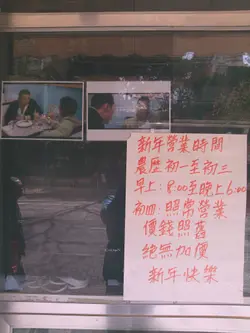 新年營業時間
農歷初一至初三
早上:8:00至晚上6:00
初四:照常營業
價錢照舊
絕無加價
新年快樂